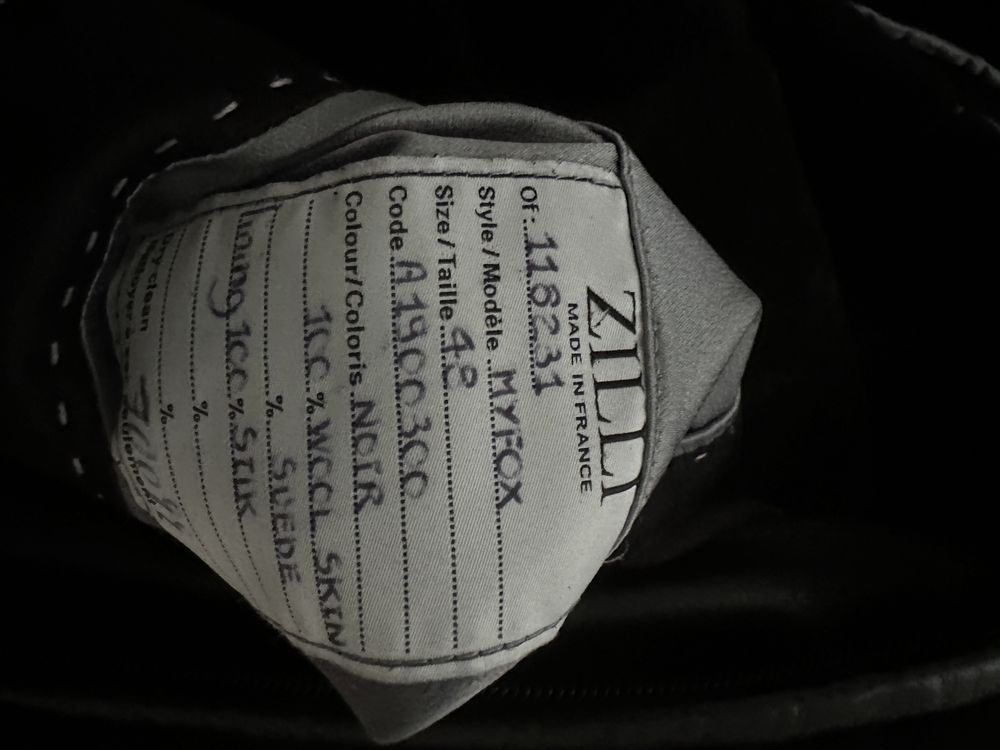 ZILLI
MADE IN FRANCE
Of : 118231
Style / Modèle MYFOX
Size / Taille 48
Code A1900300
Colour/Coloris NOIR
100 % WOOL SKIN
% SUEDE
Lining 100 % SILK
%
%
Dry clean